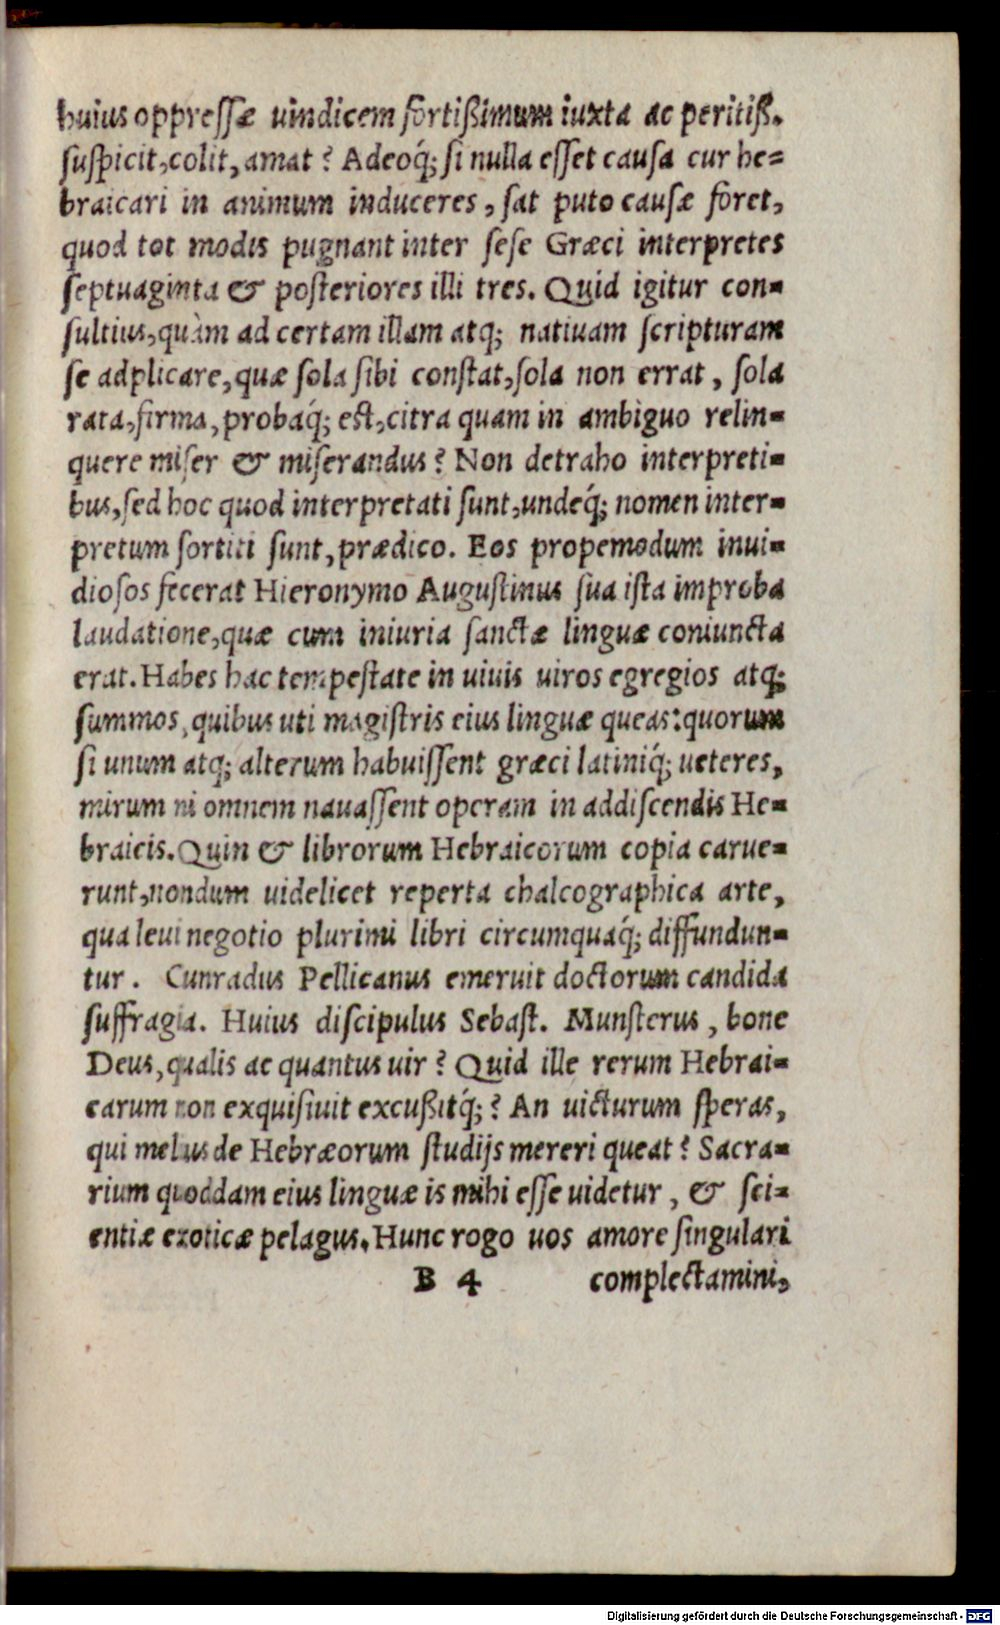 huius oppressæ uindicem fortißimum iuxta ac peritiß.
suspicit, colit, amat? Adeoq́; si nulla esset causa cur he=
braicari in animum induceres, sat puto causæ foret,
quod tot modis pugnant inter sese Græci interpretes
septuaginta & posteriores illi tres. Quid igitur con=
sultius, quàm ad certam illam atq; natiuam scripturam
se adplicare, quæ sola sibi constat, sola non errat, sola
rata, firma, probaq́; est, citra quam in ambiguo relin=
quere miser & miserandus? Non detraho interpreti=
bus, sed hoc quod interpretati sunt, undeq́; nomen inter=
pretum sortiti sunt, prædico. Eos propemodum inui=
diosos fecerat Hieronymo Augustinus sua ista improba
laudatione, quæ cum iniuria sanctæ linguæ coniuncta
erat. Habes hac tempestate in uiuis uiros egregios atq;
summos, quibus uti magistris eius linguæ queas: quorum
si unum atq; alterum habuissent græci latiniq́; ueteres,
mirum ni omnem nauassent operam in addiscendis He=
braicis. Quin & librorum Hebraicorum copia carue=
runt, nondum uidelicet reperta chalcographica arte,
qua leui negotio plurimi libri circumquaq́; diffundun=
tur. Cunradus Pellicanus emeruit doctorum candida
suffragia. Huius discipulus Sebast. Munsterus, bone
Deus, qualis ac quantus uir? Quid ille rerum Hebrai=
carum non exquisiuit excußitq́;? An uicturum speras,
qui melius de Hebræorum studijs mereri queat? Sacra=
rium quoddam eius linguæ is mihi esse uidetur, & sci=
entiæ exoticæ pelagus. Hunc rogo uos amore singulari
B 4 complectamini,
Digitalisierung gefördert durch die Deutsche Forschungsgemeinschaft - DFG